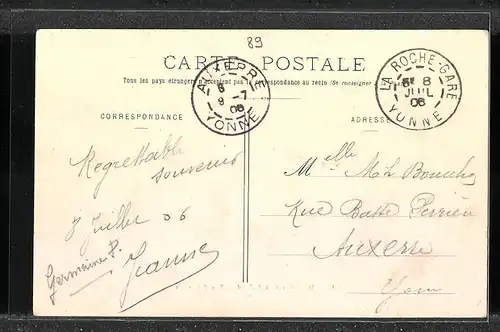 89
CARTE POSTALE
Tous les pays étrangers n'acceptent pas la correspondance au recto (Se renseigner
AUXERRE
8
9 -7
06
YONNE
LA ROCHE-GARE
8
JUIL
06
YONNE
CORRESPONDANCE
ADRESSE
Regrettable
souvenir
8 Juillet 06
Germaine P.
Jeanne
Melle M L
Rue Basse Perrière
Auxerre
Yonne